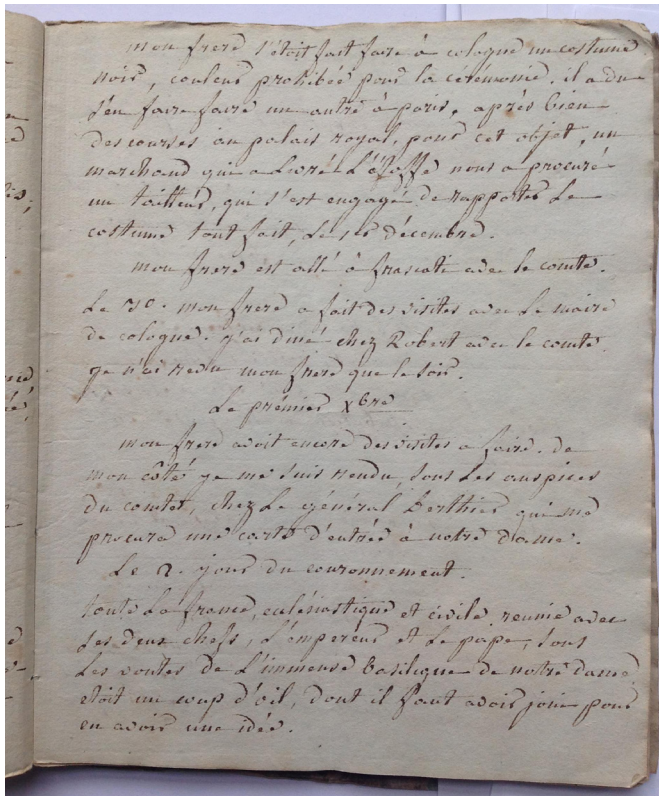 mon frere s'étoit fait faire à cologne un costume
noir, couleur prohibée pour la cérémonie. il a du
s'en faire faire un autre à paris. après bien
des courses au palais royal, pour cet objet, un
marchand qui a livré L'étoffe nous a procuré
un tailleur, qui s'est engagé de rapporter Le
costume tout fait, Le 1er décembre.
mon frere est allé à frascati avec le comte.
Le 30. mon frere a fait des visites avec Le maire
de cologne. j'ai diné chez Robert avec le comte.
je n'ai revu mon frere que le soir.
Le prémier xbre
mon frere avoit encore des visites a faire. de
mon côté je me suis rendu, sous Les auspices
du comte, chez Le général Berthier qui me
procura une carte d'entrée à notre dame.
Le 2. jour du couronnement.
toute La france, eclésiastique et civile reunie avec
ses deux chefs, L'empereur et Le pape, sous
Les voutes de L'immense basilique de notre dame
etoit un coup d'oeil, dont il faut avoir joui pour
en avoir une idée.